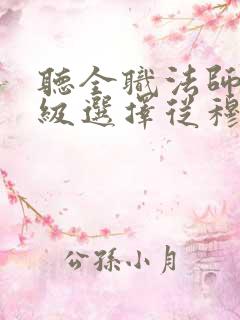 聽全職法師
級選擇從穆
公孫小月